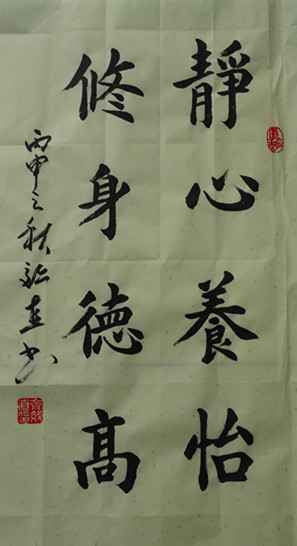 靜心養怡
修身德高
丙申之秋
書